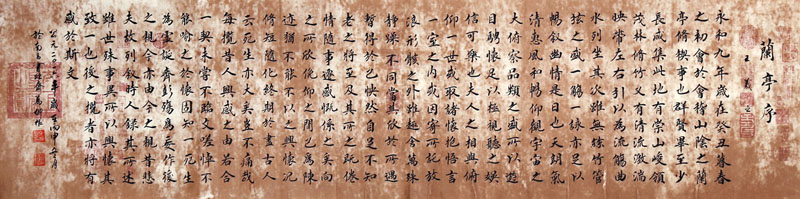 蘭亭序
王羲之
永和九年歲在癸丑暮春
之初會於會稽山陰之蘭
亭脩禊事也群賢畢至少
長咸集此地有崇山峻領
茂林脩竹又有清流激湍
映帶左右引以為流觴曲
水列坐其次雖無絲竹管
弦之盛一觴一詠亦足以
暢敘幽情是日也天朗氣
清惠風和暢仰觀宇宙之
大俯察品類之盛所以遊
目騁懷足以極視聽之娛
信可樂也夫人之相與俯
仰一世或取諸懷抱悟言
一室之內或因寄所託放
浪形骸之外雖趣舍萬殊
靜躁不同當其欣於所遇
暫得於己怏然自足不知
老之將至及其所之既倦
情隨事遷感慨係之矣向
之所欣俛仰之閒已為陳
迹猶不能不以之興懷況
脩短隨化終期於盡古人
云死生亦大矣豈不痛哉
每攬昔人興感之由若合
一契未嘗不臨文嗟悼不
能喻之於懷固知一死生
為虛誕齊彭殤為妄作後
之視今亦由今之視昔悲
夫故列敘時人錄其所述
雖世殊事異所以興懷其
致一也後之攬者亦將有
感於斯文
公元二